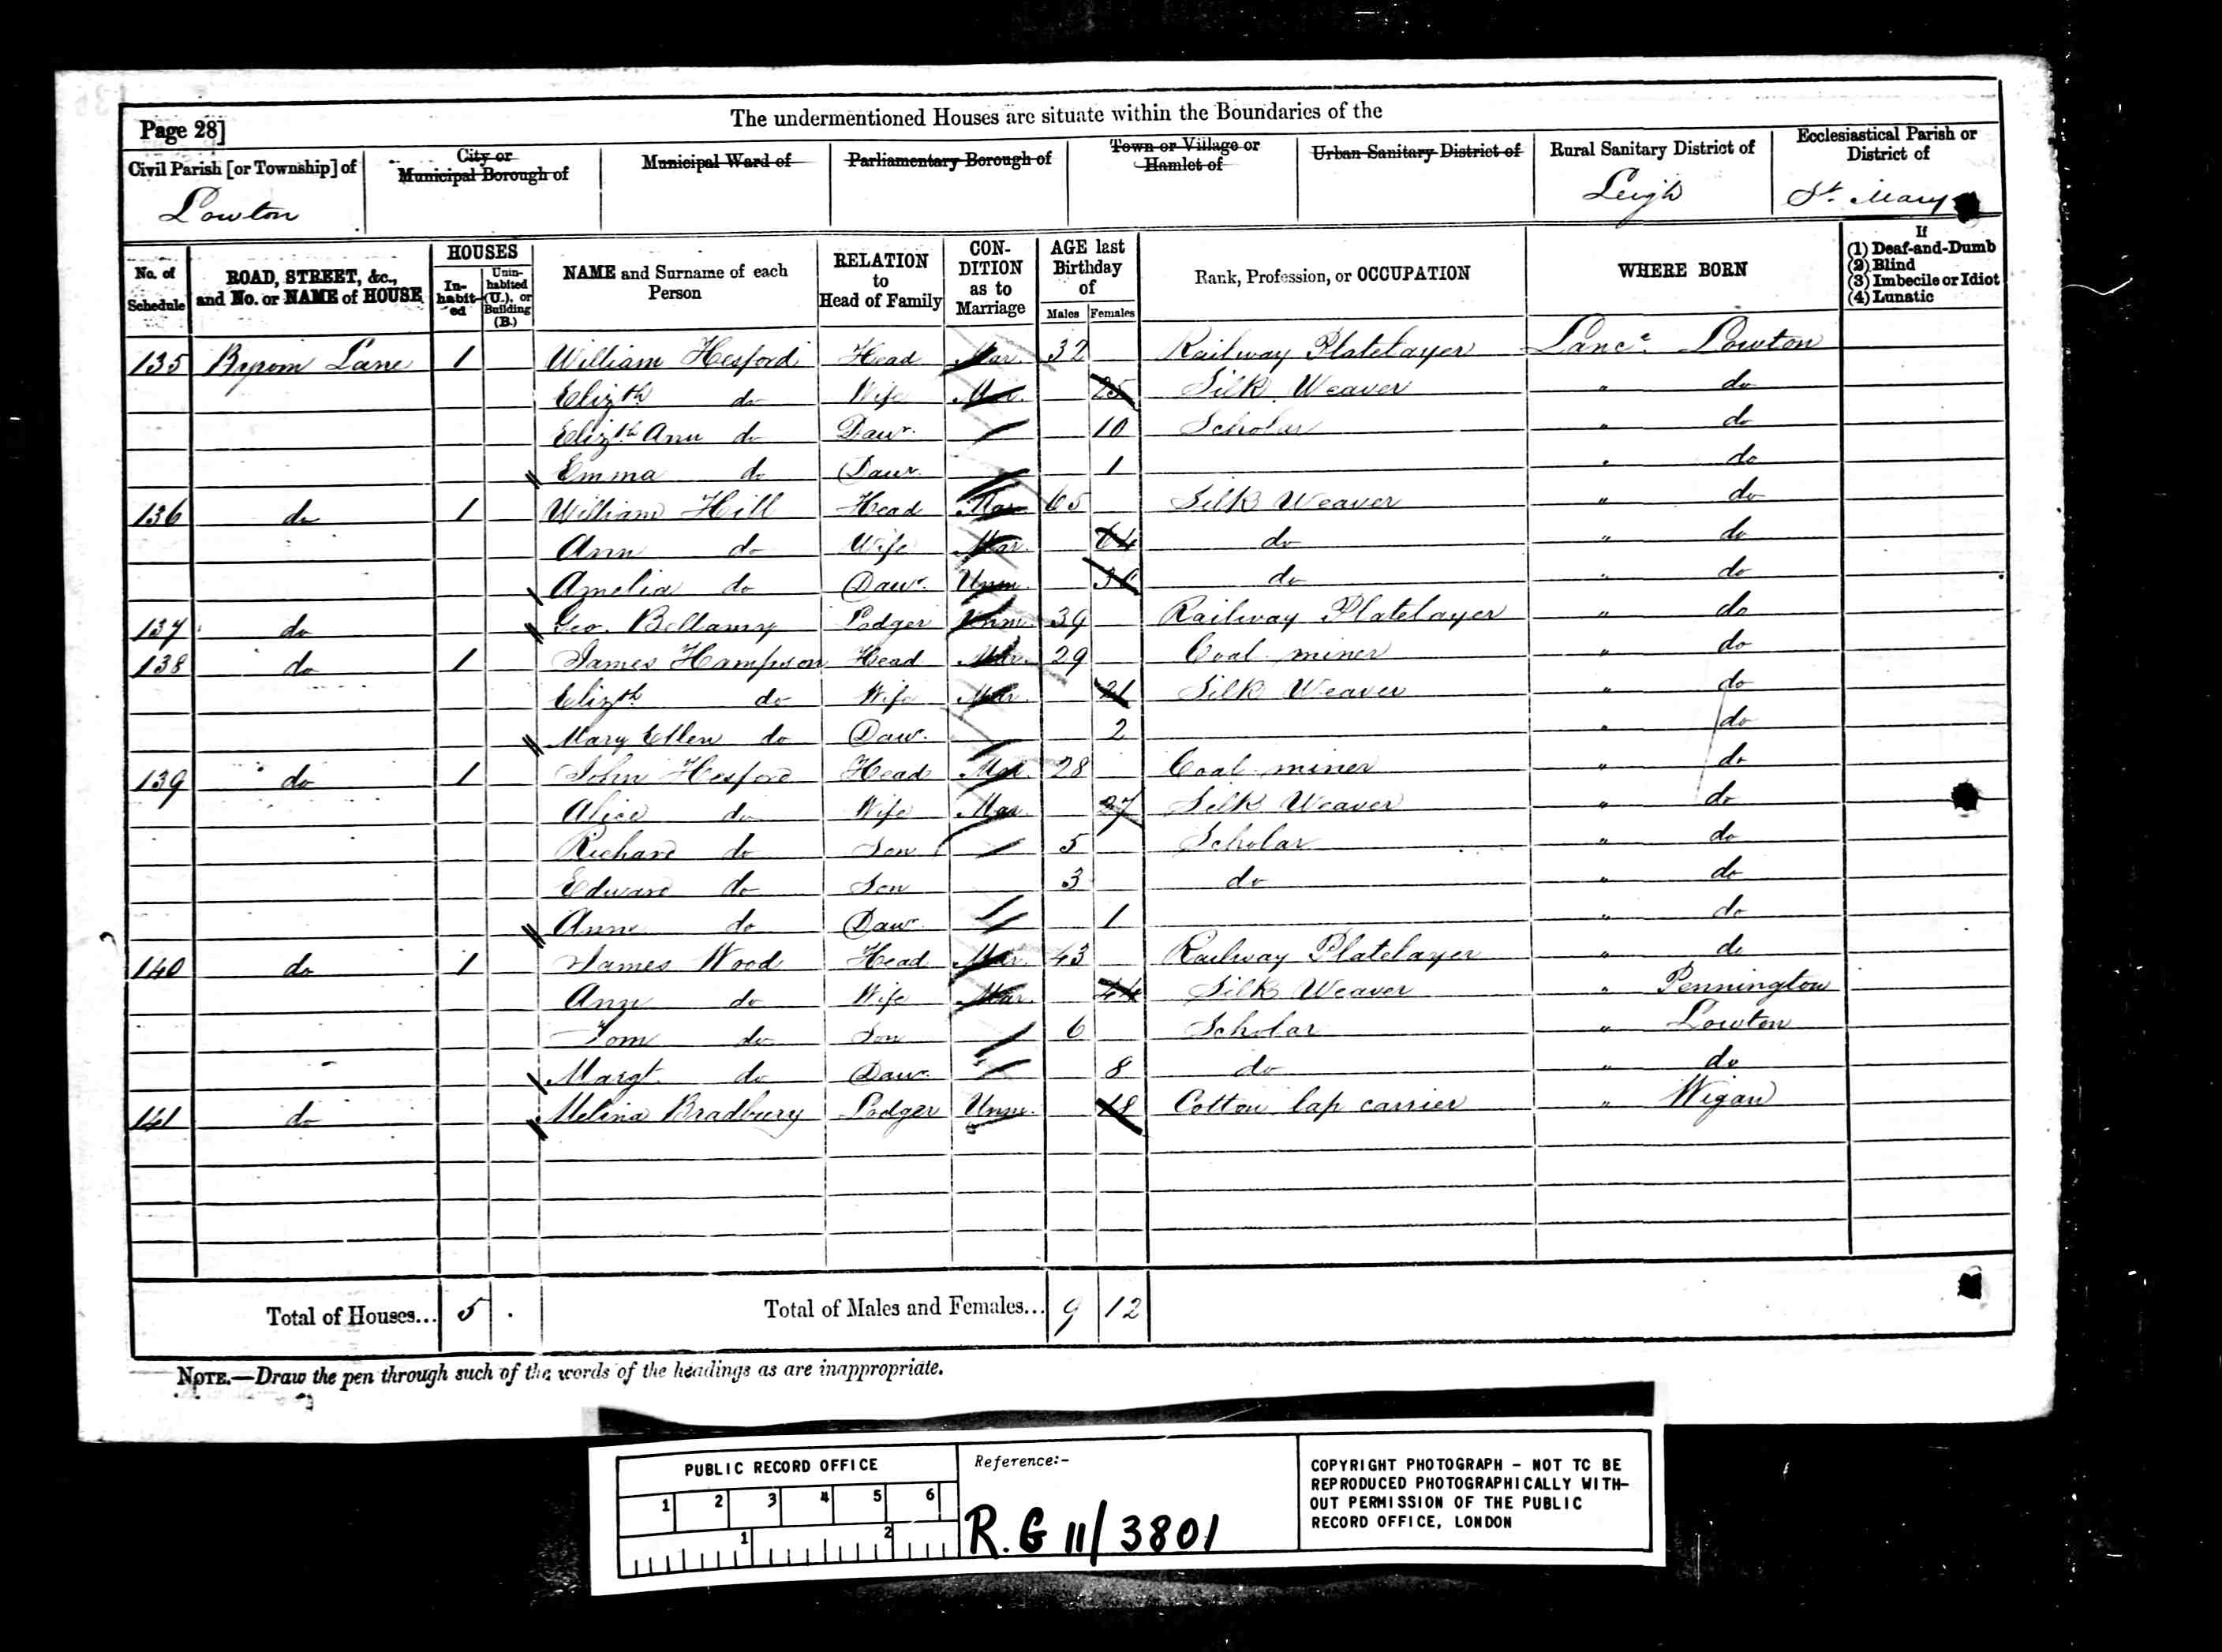 The undermentioned Houses are situate within the Boundaries of the
Page 28]
Civil Parish [or Township] of
City or Municipal Borough of
Municipal Ward of
Parliamentary Borough of
Town or Village or Hamlet of
Urban Sanitary District of
Rural Sanitary District of
Ecclesiastical Parish or District of
Lowton
Leigh
St. Mary
No. of Schedule
ROAD, STREET, &c., and No. or NAME of HOUSE
HOUSES
In-habit-ed
Unin-habited (U.), or Building (B.)
NAME and Surname of each Person
RELATION to Head of Family
CON-DITION as to Marriage
AGE last Birthday of
Males
Females
Rank, Profession, or OCCUPATION
WHERE BORN
If
(1) Deaf-and-Dumb
(2) Blind
(3) Imbecile or Idiot
(4) Lunatic
135 Byrom Lane 1 William Hesford Head Mar. 32 Railway Platelayer Lanc. Lowton
Elizth do Wife Mar. 25 Silk Weaver " do
Elizth Ann do Dawr. 10 Scholar " do
Emma do Dawr. 1 " do
136 do 1 William Hill Head Mar. 65 Silk Weaver " do
Ann do Wife Mar. 64 do " do
Amelia do Dawr. Unm. do " do
137 do Geo. Bellamy Lodger Unm. 39 Railway Platelayer " do
138 do 1 James Hampson Head Mar. 29 Coal miner " do
Elizth do Wife Mar. 21 Silk Weaver " do
Mary Ellen do Daw. 2 " do
139 do 1 John Hesford Head Mar. 28 Coal miner " do
Alice do Wife Mar. 27 Silk Weaver " do
Richard do Son 5 Scholar " do
Edward do Son 3 do " do
Ann do Dawr 1 " do
140 do 1 James Wood Head Mar. 43 Railway Platelayer " do
Ann do Wife Mar. 44 Silk Weaver " Pennington
Tom do Son 6 Scholar " Lowton
Margt. do Dawr. 8 do " do
141 do Melina Bradbury Lodger Unm. 18 Cotton lap carrier " Wigan
Total of Houses... 5 .
Total of Males and Females... 9 12
NOTE.—Draw the pen through such of the words of the headings as are inappropriate.
PUBLIC RECORD OFFICE
1 2 3 4 5 6
1 2
Reference:-
R.G 11/3801
COPYRIGHT PHOTOGRAPH - NOT TO BE
REPRODUCED PHOTOGRAPHICALLY WITH-
OUT PERMISSION OF THE PUBLIC
RECORD OFFICE, LONDON